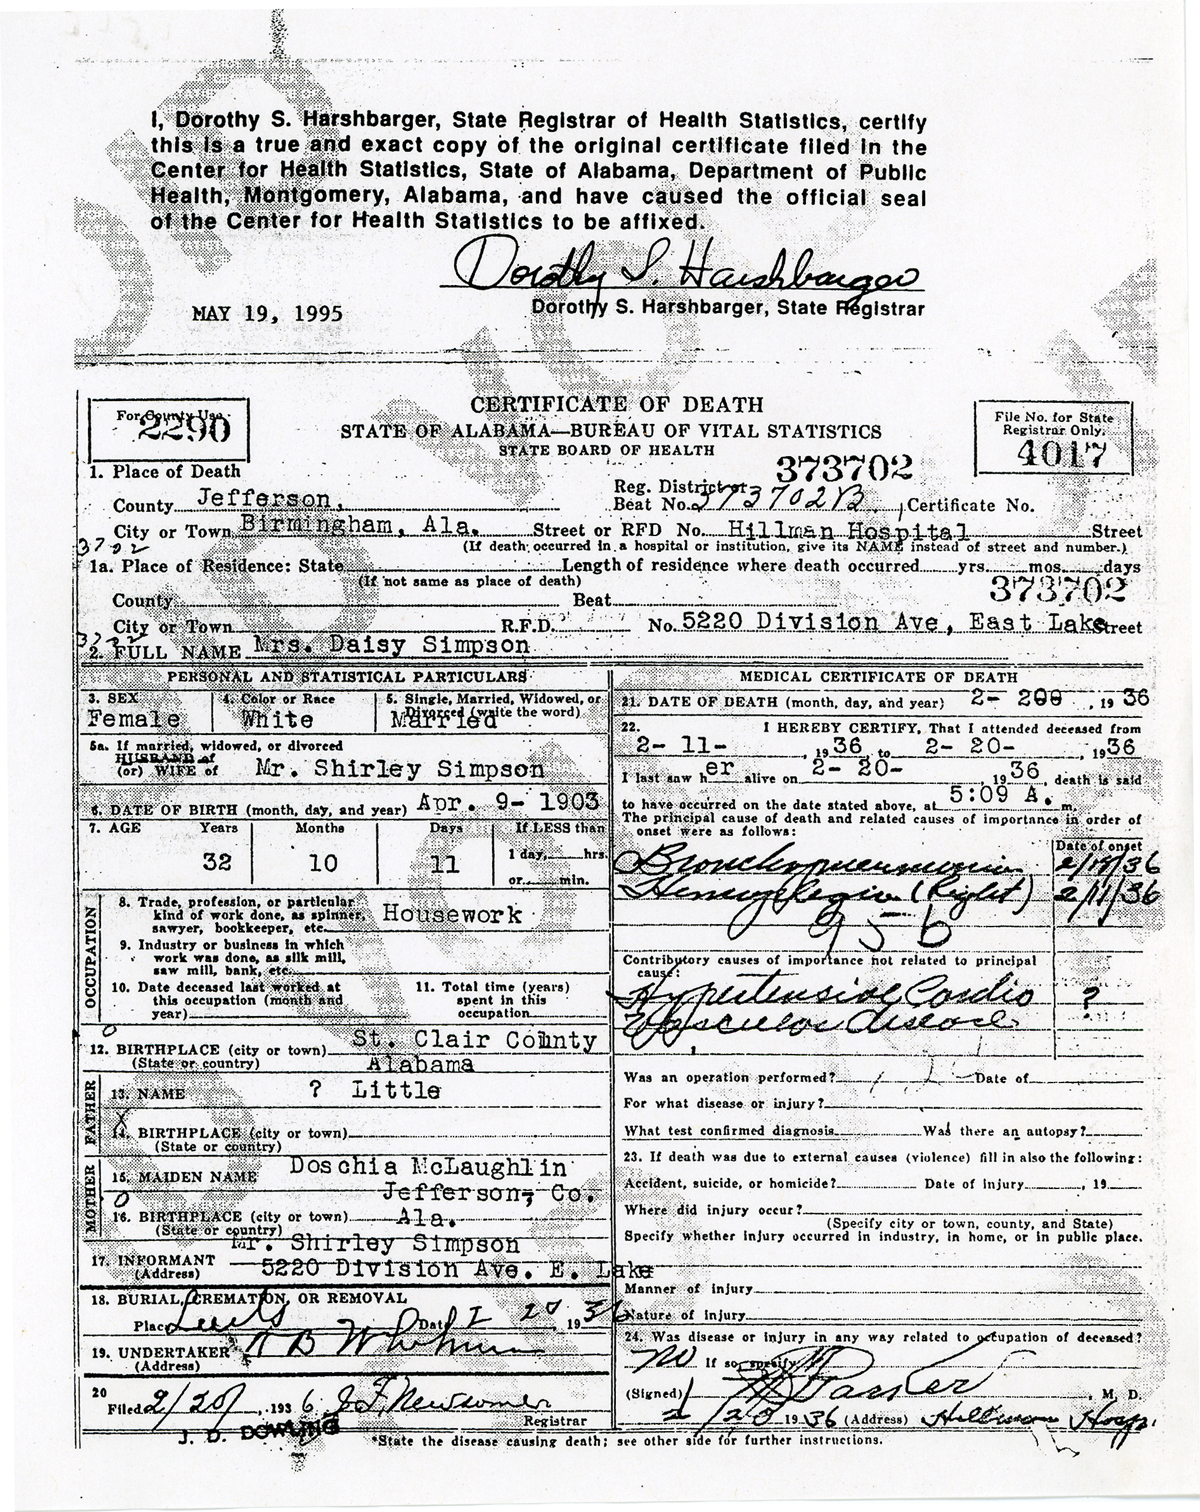 I, Dorothy S. Harshbarger, State Registrar of Health Statistics, certify
this is a true and exact copy of the original certificate filed in the
Center for Health Statistics, State of Alabama, Department of Public
Health, Montgomery, Alabama, and have caused the official seal
of the Center for Health Statistics to be affixed.
Dorothy S. Harshbarger
MAY 19, 1995
Dorothy S. Harshbarger, State Registrar
For County Use
2290
CERTIFICATE OF DEATH
STATE OF ALABAMA—BUREAU OF VITAL STATISTICS
STATE BOARD OF HEALTH
File No. for State
Registrar Only.
4017
1. Place of Death
373702
County Jefferson,
Reg. District or
Beat No. 373702B, Certificate No.
City or Town Birmingham, Ala. Street or RFD No. Hillman Hospital Street
(If death occurred in a hospital or institution, give its NAME instead of street and number.)
3702
1a. Place of Residence: State Length of residence where death occurred yrs. mos. days
(If not same as place of death)
373702
County Beat
City or Town R.F.D. No. 5220 Division Ave, East Lake Street
3702
2. FULL NAME Mrs. Daisy Simpson
PERSONAL AND STATISTICAL PARTICULARS
3. SEX
Female
4. Color or Race
White
5. Single, Married, Widowed, or
Divorced (write the word)
Married
5a. If married, widowed, or divorced
HUSBAND of
(or) WIFE of Mr. Shirley Simpson
6. DATE OF BIRTH (month, day, and year) Apr. 9- 1903
7. AGE Years Months Days If LESS than
32 10 11 1 day, hrs.
or min.
OCCUPATION
8. Trade, profession, or particular
kind of work done, as spinner,
sawyer, bookkeeper, etc. Housework
9. Industry or business in which
work was done, as silk mill,
saw mill, bank, etc.
10. Date deceased last worked at
this occupation (month and
year)
11. Total time (years)
spent in this
occupation
0
12. BIRTHPLACE (city or town) St. Clair County
(State or country) Alabama
FATHER
13. NAME ? Little
X
14. BIRTHPLACE (city or town)
(State or country)
MOTHER
15. MAIDEN NAME Doschia McLaughlin
0
Jefferson, Co.
16. BIRTHPLACE (city or town) Ala.
(State or country)
17. INFORMANT Mr. Shirley Simpson
(Address) 5220 Division Ave. E. Lake
18. BURIAL, CREMATION, OR REMOVAL
Place Leeds Date 1936
19. UNDERTAKER
(Address)
20
Filed 2/20, 1936 J F Newsomer
Registrar
J. D. DOWLING
MEDICAL CERTIFICATE OF DEATH
21. DATE OF DEATH (month, day, and year) 2- 200 , 1936
22. I HEREBY CERTIFY, That I attended deceased from
2- 11- 1936 to 2- 20- , 1936
I last saw her alive on 2- 20- , 1936, death is said
to have occurred on the date stated above, at 5:09 A. m.
The principal cause of death and related causes of importance in order of
onset were as follows:
Date of onset
Bronchopneumonia /36
Hemiplegia (Right) 2/11/36
95b
Contributory causes of importance not related to principal
cause:
Hypertensive Cardio ?
Vascular disease
Was an operation performed? Date of
For what disease or injury?
What test confirmed diagnosis Was there an autopsy?
23. If death was due to external causes (violence) fill in also the following:
Accident, suicide, or homicide? Date of injury , 19
Where did injury occur?
(Specify city or town, county, and State)
Specify whether injury occurred in industry, in home, or in public place.
Manner of injury
Nature of injury
24. Was disease or injury in any way related to occupation of deceased?
No If so, specify
(Signed) Parker , M. D.
2/20 1936 (Address) Hillman Hosp.
*State the disease causing death; see other side for further instructions.